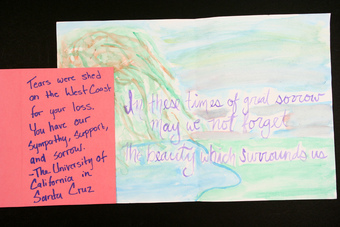 Tears were shed
on the West Coast
for your loss.
You have our
sympathy, support,
and sorrow.
-The University of
California in
Santa Cruz
In these times of great sorrow
may we not forget
the beauty which surrounds us